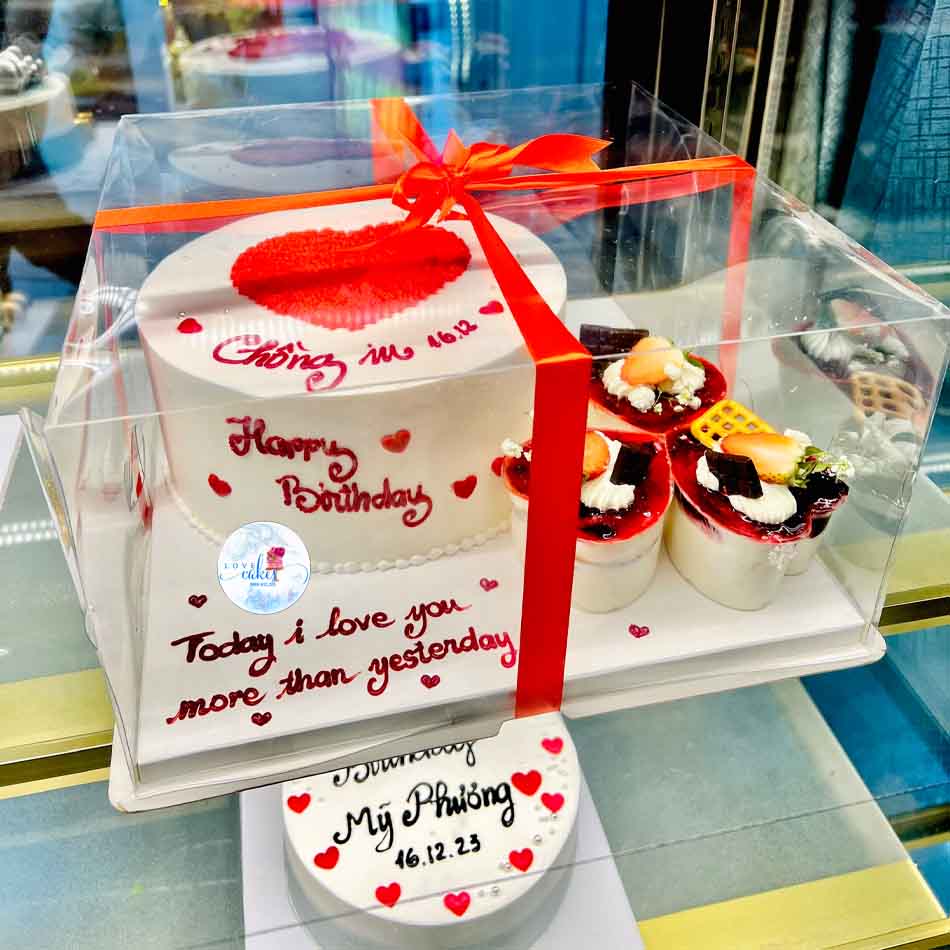 Chồng iu 16.12
Happy
Birthday
LOVE
cakes
Today i love you
more than yesterday
Birthday
Mỹ Phương
16.12.23